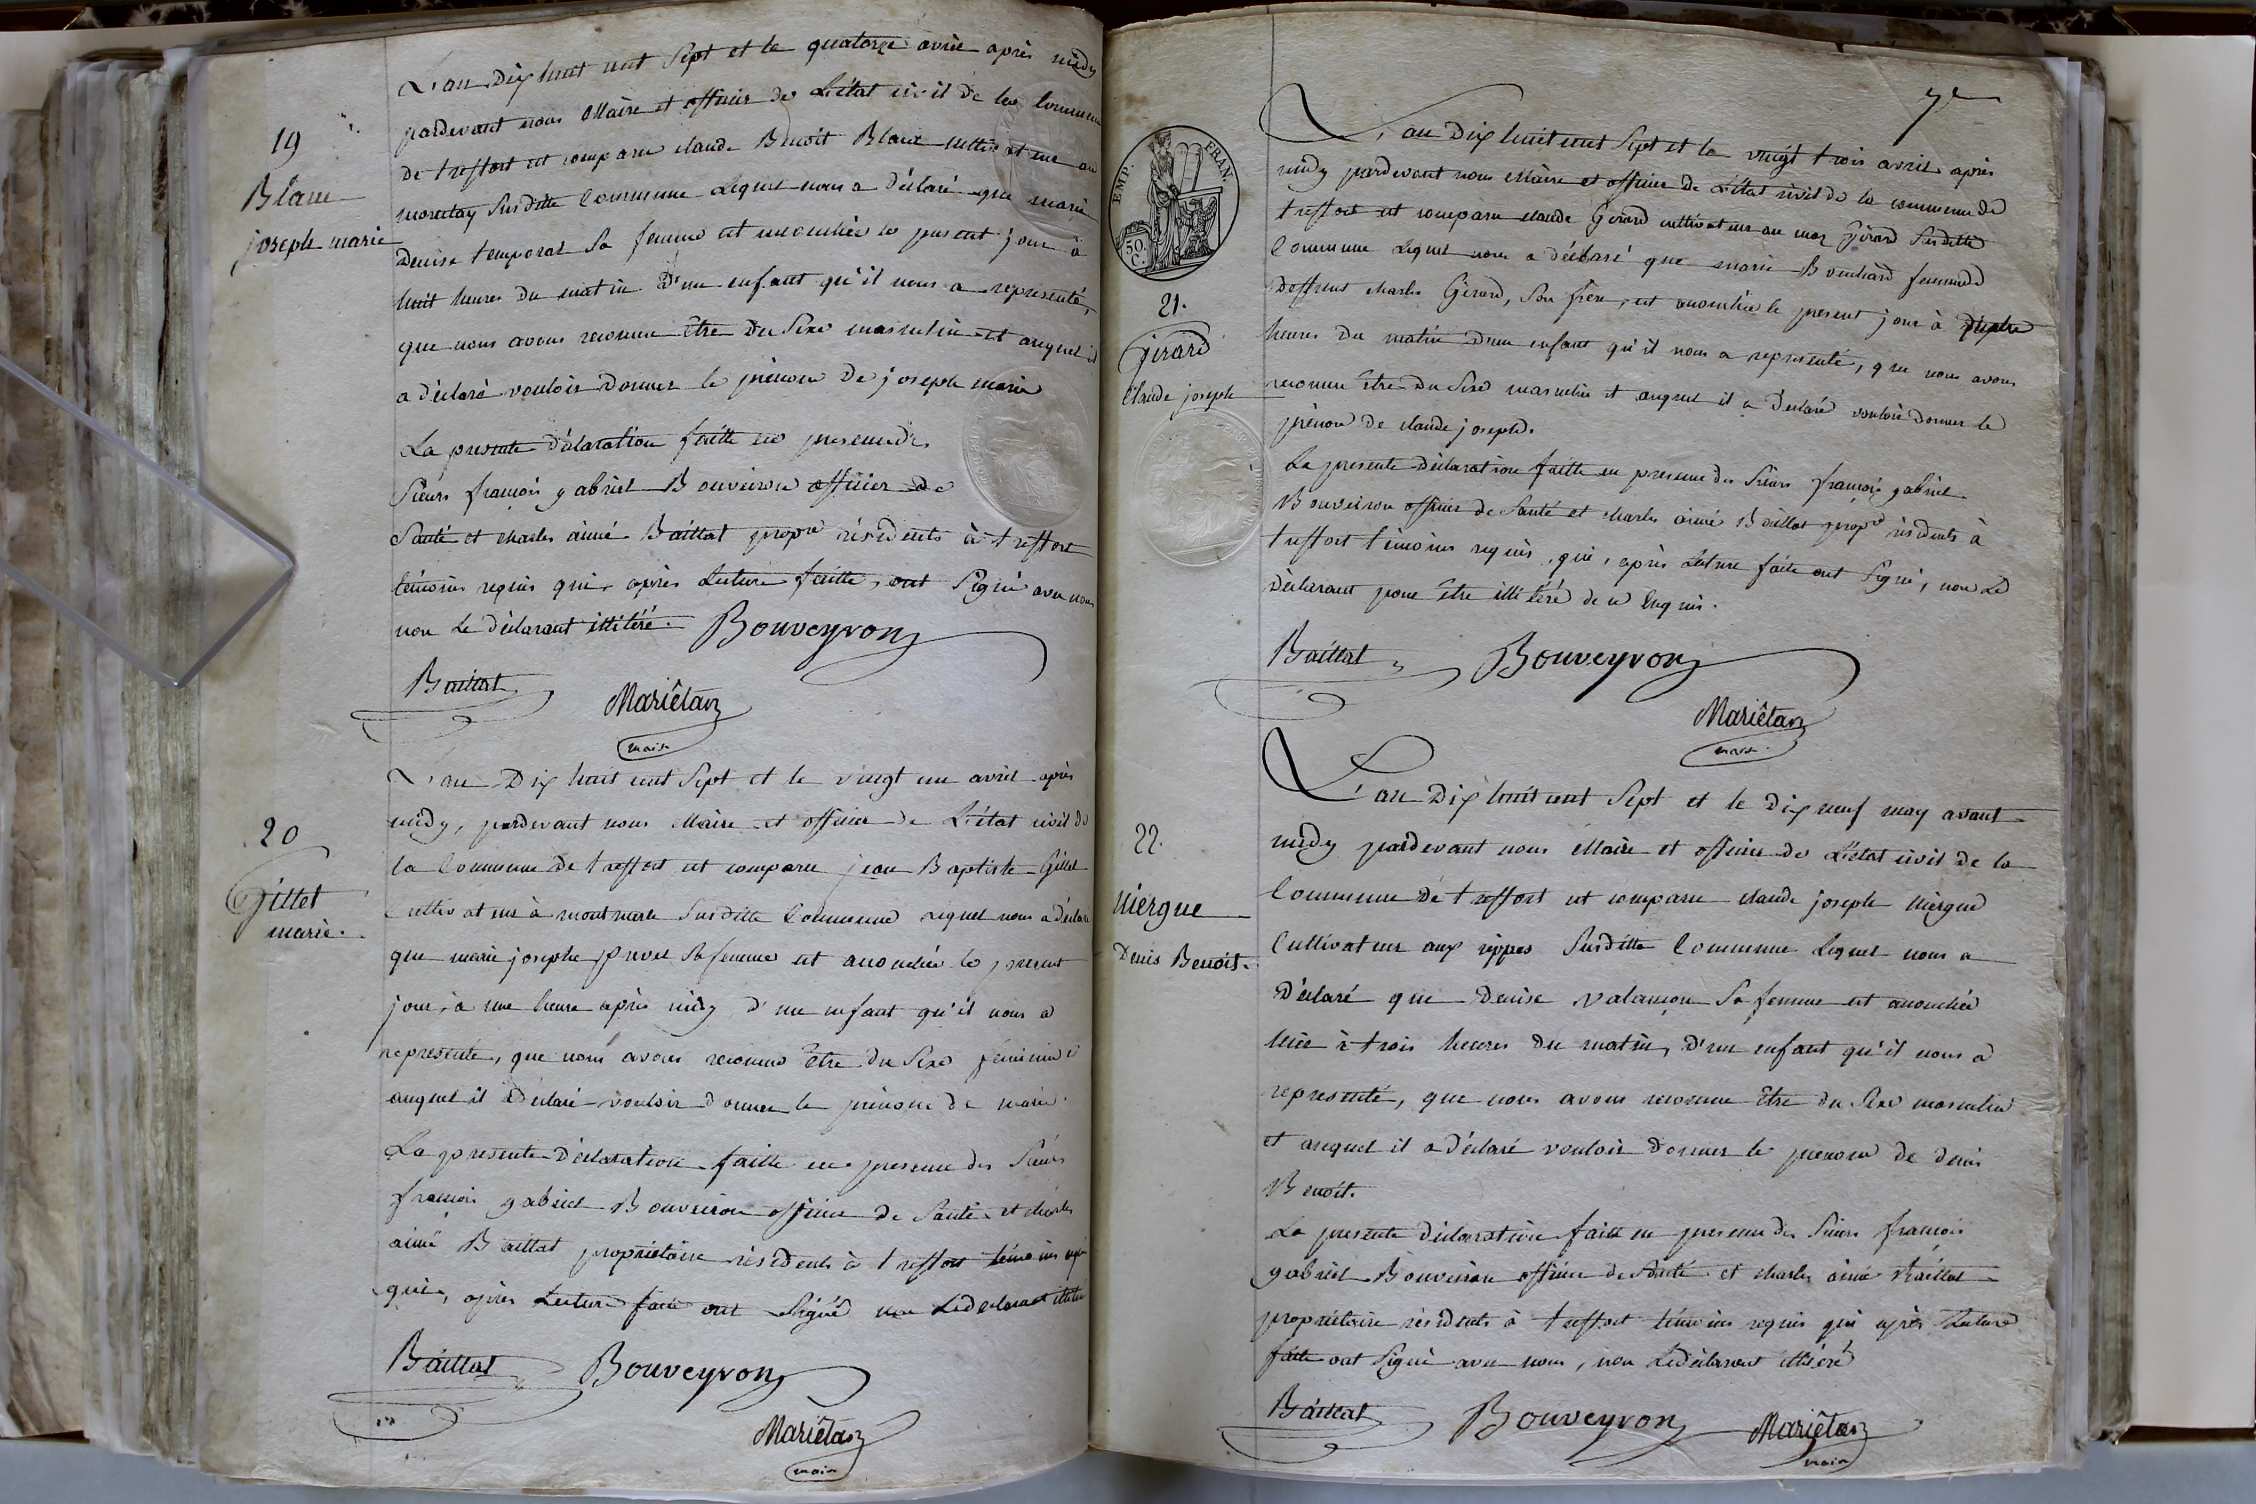 19
Blanc
joseph marie
L'an Dix huit cent Sept et le quatorze avril après midy
pardevant nous Maire et officier de L'état civil de la Commune
de treffort est comparu claude Benoit Blanc cultivateur au
montelay Susditte Commune Lequel nous a déclaré que marie
Denise temporal Sa femme est accouchée le present jour à
huit heures du matin D'un enfant qu'il nous a représenté,
que nous avons reconnu Etre Du Sexe masculin et auquel il
a déclaré vouloir Donner le prénom De joseph marie
La presente déclaration faitte en presence des
Sieurs françois gabriel Bouveiron officier de
Santé et charles aimé Baillat propre résidents à treffort
témoins requis qui, après Lecture faitte, ont Signé avec nous
non Le déclarant illitéré. Bouveyron
Baillat
Mariétan
maire
20
Gillet
marie.
L'an Dix huit cent Sept et le vingt un avril après
midy, pardevant nous Maire et officier de L'état civil de
la Commune de treffort est comparu jean Baptiste Gillet
Cultivateur à montmerle Susditte Commune Lequel nous a déclaré
que marie josephe Sa femme est accouchée le present
jour, à une heure après midy d'un enfant qu'il nous a
representé, que nous avons reconnu Etre du Sexe féminin et
auquel il a Déclaré vouloir donner le prénom de marie.
La presente Déclaration faitte en presence des Sieurs
françois gabriel Bouveiron officier de Santé et charles
aimé Baillat propriétaire résidents à treffort témoins requis
qui, après Lecture faite ont Signé non Le declarant
Baillat Bouveyron
Mariétan
maire
EMP. FRAN.
50.
C.
21.
Girard
Claude joseph
L'an Dix huit cent Sept et le vingt trois avril après
midy pardevant nous Maire et officier de L'état civil de la commune de
treffort est comparu claude Girard cultivateur au mas Girard Susditte
Commune Lequel nous a déclaré que marie Bouchard femme de
Deffunt charles Girard, Son frère, est accouchée le present jour à
heures du matin D'un enfant qu'il nous a representé, que nous avons
reconnu Etre Du Sexe masculin et auquel il a Déclaré vouloir donner le
prénom de claude joseph.
La presente Déclaration faitte en presence des Sieurs françois gabriel
Bouveiron officier de Santé et charles aimé Baillat propre résidents à
treffort témoins requis, qui, après Lecture faite ont Signé, non Le
Déclarant pour Etre illitéré de ce Enquis.
Baillat Bouveyron
Mariétan
maire.
22.
Niergue
Denis Benoit.
L'an Dix huit cent Sept et le Dix neuf may avant
midy pardevant nous Maire et officier de L'état civil de la
Commune De treffort est comparu claude joseph Niergue
Cultivateur aux rippes Susditte Commune Lequel nous a
Déclaré que Denise valançon Sa femme est accouchée
hier à trois heures du matin, D'un enfant qu'il nous a
representé, que nous avons reconnu Etre du Sexe masculin
et auquel il a déclaré vouloir Donner le prenom de denis
Benoit.
La presente déclaration faitte en presence des Sieurs françois
gabriel Bouveiron officier de Santé et charles aimé Baillat
propriétaire résidents à treffort témoins requis qui après Lecture
faitte ont Signé avec nous, non Le déclarant illitéré
Baillat Bouveyron Mariétan
maire